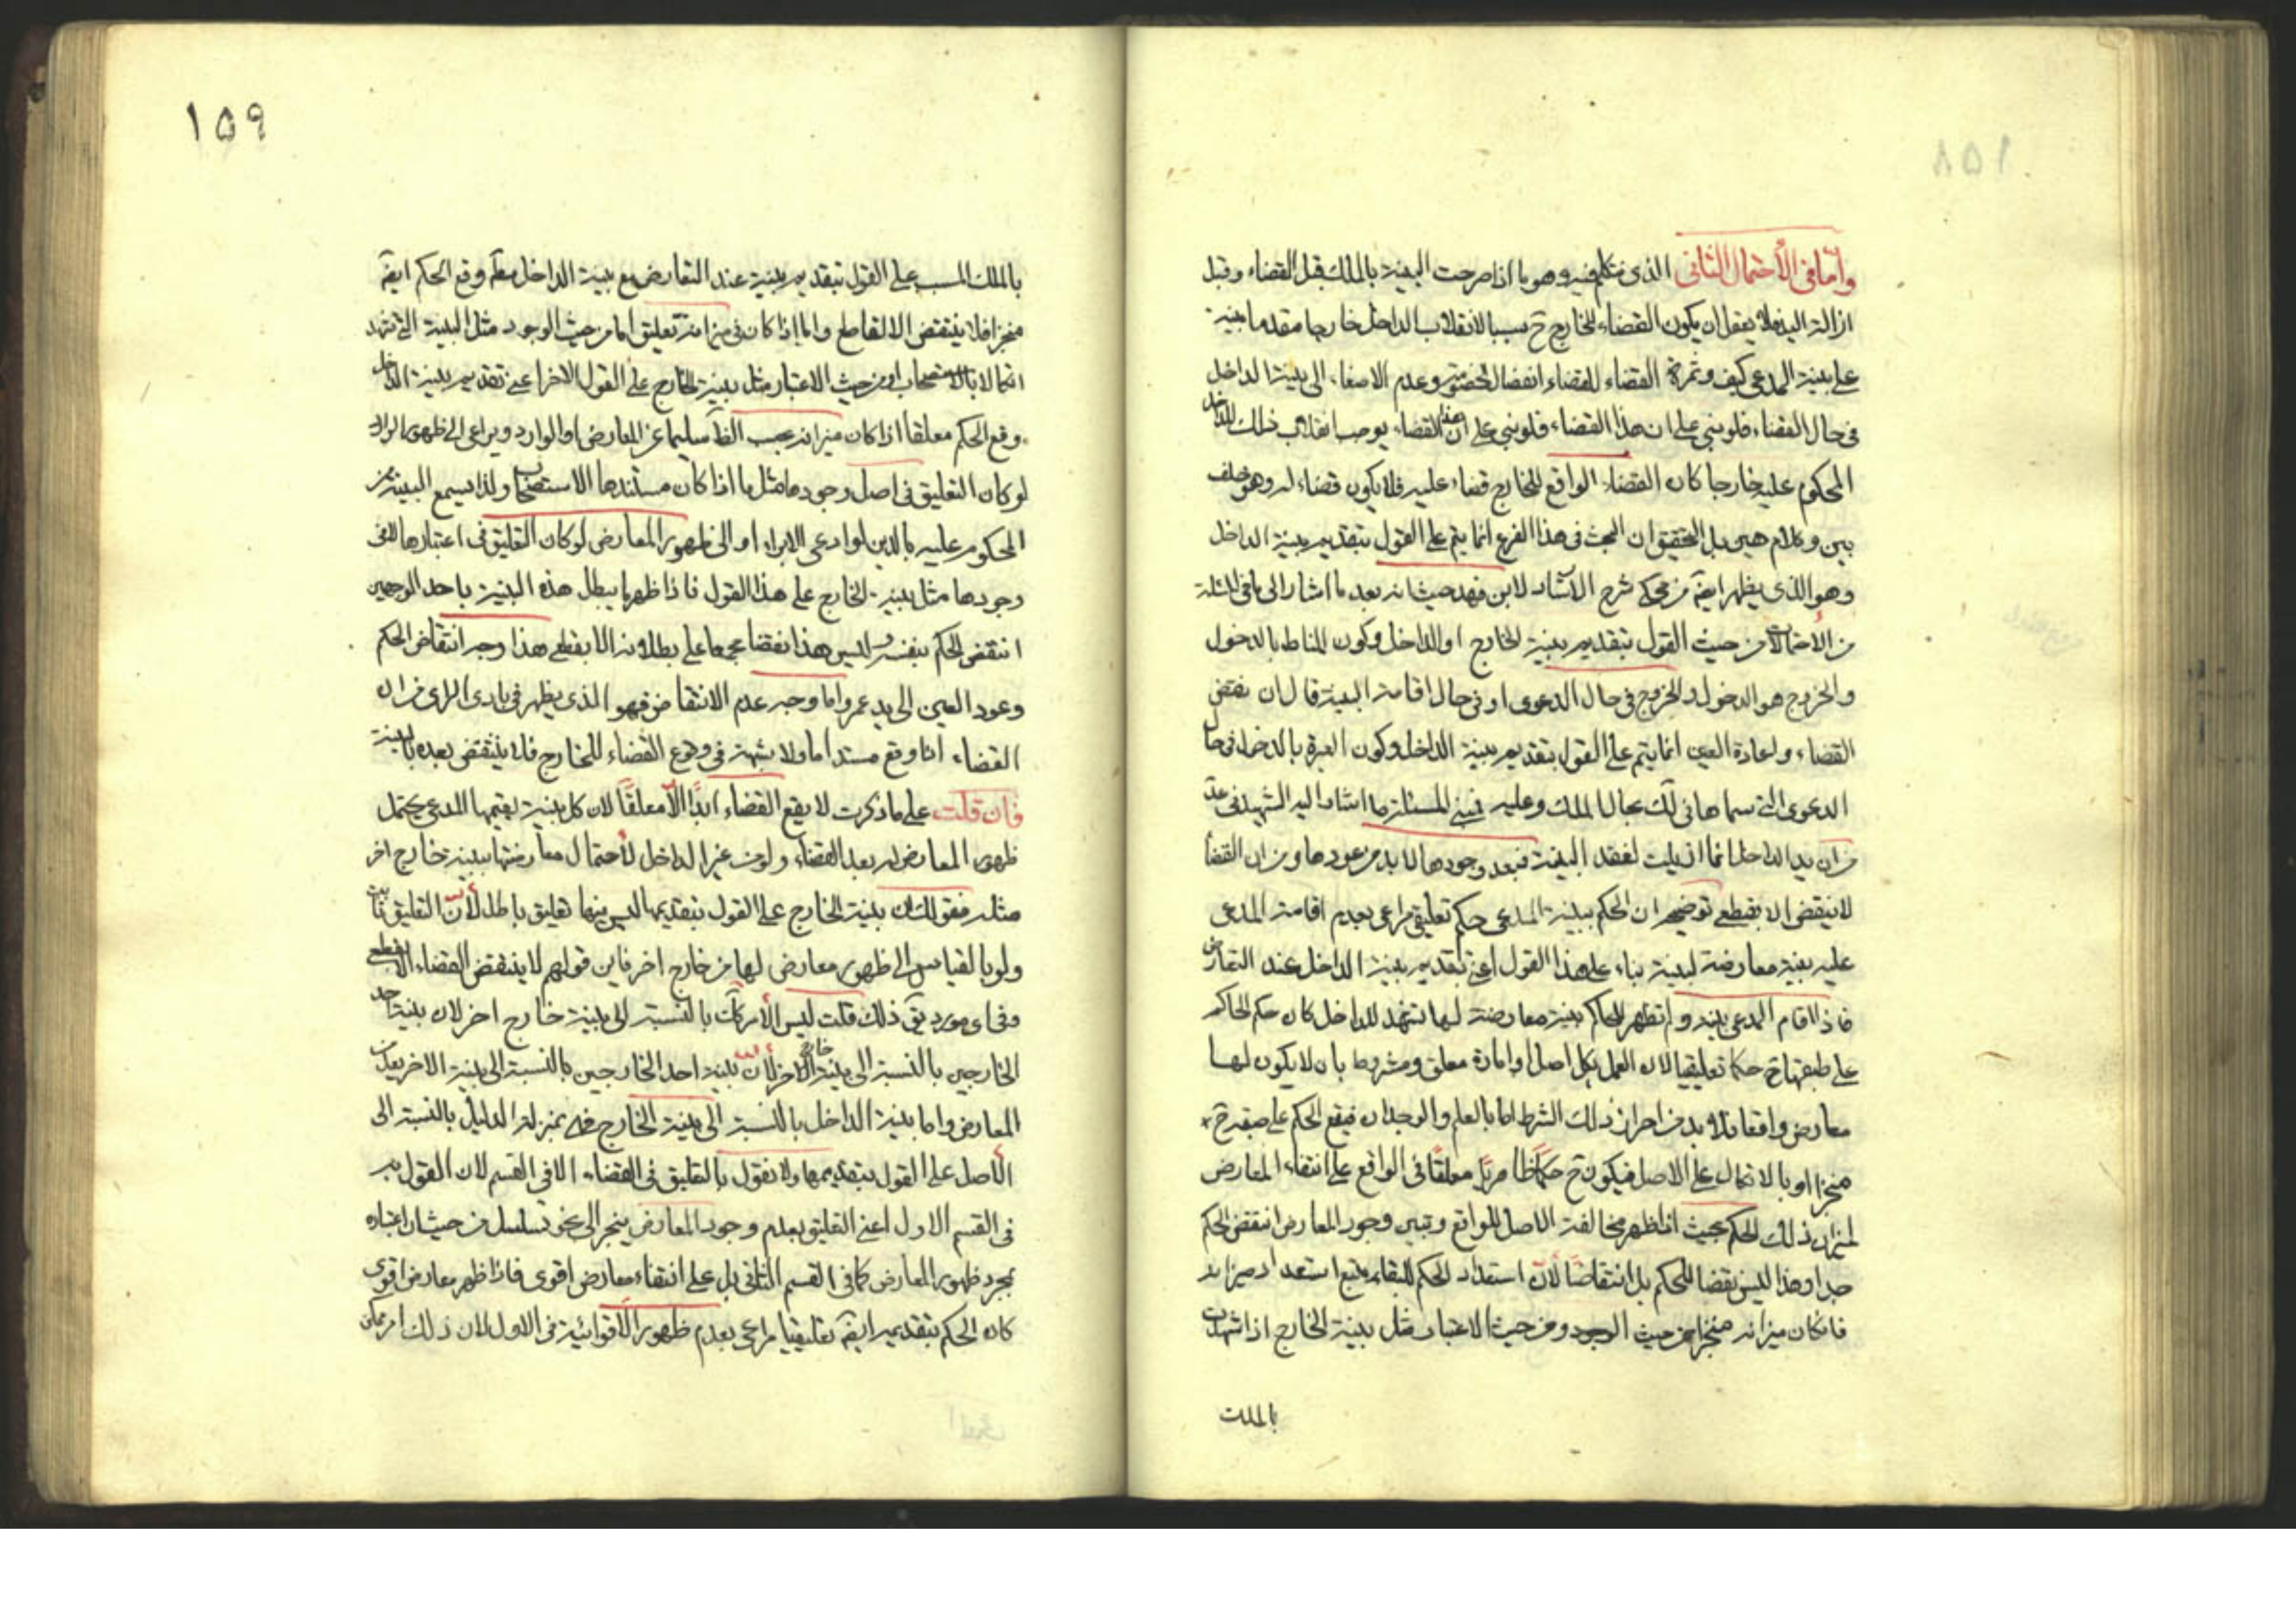 وأما في الأحتمال الثاني الذي نتكلم فيه وهو ما اذا صرحت البينة بالملك قبل القضاء وقبل
ازالة اليد فلا يعقل ان يكون القضاء للخارج ح سببا لانقلاب الداخل خارجا مقدما بينته
على بينة المدعي كيف وثمرة القضاء للقضاء انفصال الخصومة وعدم الاصغاء الى بينة الداخل
في حال القضاء فلو بني على ان هذا القضاء فلو بني على ان هذا القضاء يوجب انقلاب ذلك الداخل
المحكوم عليه خارجا كان القضاء الواقع للخارج قضاء عليه فلا يكون قضاء له وهو خلف
بين وكلام هين بل التحقيق ان البحث في هذا الفرع انما يتم على القول بتقديم بينة الداخل
وهو الذي يظهر ايضً من محكي شرح الارشاد لابن فهد حيث انه بعد ما اشار الى ما في المسئلة
من الاحتمالات من حيث القول بتقديم بينة الخارج او الداخل وكون المناط بالدخول
والخروج هو الدخول والخروج في حال الدعوى او في حال اقامة البينة قال ان نقض
القضاء واعادة العين انما يتم على القول بتقديم بينة الداخل وكون العبرة بالدخول في حال
الدعوى التي سماها في لك بحال الملك وعليه يبنى المسئلة ما اشار اليه الشهيد في عد
من ان يد الداخل انما ازيلت لفقد البينة فبعد وجودها لا بد من عودها ومن ان القضا
لا ينقض الا بقطعي توضيحه ان الحكم ببينة المدعي حكم تعليقي مراعى بعدم اقامة المدعى
عليه بينة معارضة لبينته بناء على هذا القول اعني تقديم بينة الداخل عند التعارض
فاذا اقام المدعي بينة ولم تظهر للحاكم بينة معارضة لها تشهد للداخل كان حكم الحاكم
على طبقها ح حكما تعليقيا لان العمل بكل اصل او امارة معلق ومشروط بان لا يكون لها
معارض واقعا فلا بد من احراز ذلك الشرط اما بالعلم والوجدان فيقع الحكم على طبقه ح
منجزا او بالاتكال على الاصل فيكون ح حكما ظاهريًا معلقًا في الواقع على انتفاء المعارض
لميزان ذلك الحكم بحيث اذا ظهر مخالفة الاصل للواقع وتبين وجود المعارض انتقض الحكم
جدا وهذا ليس نقضا للحكم بل انتقاضًا لأن استعداد الحكم للبقاء يتبع استعداد ميزانه
فان كان ميزانه منجزا من حيث الوجود ومن حيث الاعتبار مثل بينة الخارج اذا شهدت
بالملك
١٥٩
بالملك المسبب على القول بتقديم بينته عند التعارض مع بينة الداخل مطً وقع الحكم ايضً
منجزا فلا ينتقض الا لقاطع واما اذا كان في ميزانه تعليق اما من حيث الوجود مثل البينة التي تشهد
اتكالا بالاستصحاب او من حيث الاعتبار مثل بينة الخارج على القول الاخر اعني تقديم بينة الداخل
وقع الحكم معلقا اذا كان ميزانه بحسب الظً سليما عن المعارض او الوارد ويراعى الى ظهور الوارد
لو كان التعليق في اصل وجودها مثل ما اذا كان مستندها الاستصحاب ولذا يسمع البينة من
المحكوم عليه بالدين لو ادعى الابراء او الى ظهور المعارض لو كان التعليق في اعتبارها لا في
وجودها مثل بينة الخارج على هذا القول فاذا ظهر ما يبطل هذه البينة باحد الوجهين
انتقض الحكم بنفسه وليس هذا نقضا مجمعا على بطلانه الا بقطعي هذا وجه انتقاض الحكم
وعود العين الى يد عمرو واما وجه عدم الانتقاض فهو الذي يظهر في بادي الراي من ان
القضاء انما وقع مستداما ولا شبهة في وقوع القضاء للخارج فلا ينتقض بعده بالبينة
فان قلت على ما ذكرت لا يقع القضاء ابدًا الا معلقًا لان كل بينة يقيمها المدعي يحتمل
ظهور المعارض له بعد القضاء ولو من غير الداخل لأحتمال معارضتها ببينة خارج اخر
مثله فقولك ان بينة الخارج على القول بتقديمها ليس فيها تعليق باطل لأن التعليق ثابت
ولو بالقياس الى ظهور معارض لها من خارج اخر فاين قولهم لا ينتقض القضاء الا بقطعي
وفي اي مورد يتً ذلك قلت ليس الأمر كك بالنسبة الى بينة خارج اخر لان بينة احد
الخارجين بالنسبة الى بينة الخارج الاخر لأن بينة احد الخارجين بالنسبة الى بينة الاخر يعد من
المعارض واما بينة الداخل بالنسبة الى بينة الخارج فهي بمنزلة الدليل بالنسبة الى
الأصل على القول بتقديمها ولا نقول بالتعليق في القضاء الا في القسم لان القول به
في القسم الاول اعني التعليق بعدم وجود المعارض ينجر الى نحو تسلسل من حيث ان اعتباره
بمجرد ظهور المعارض كما في القسم الثاني بل على انتفاء معارض اقوى فاذا ظهر معارض اقوى
كان الحكم بتقديمه ايضً تعليقيا مراعى بعدم ظهور الأقوائية في الاول لان ذلك امر ممكن